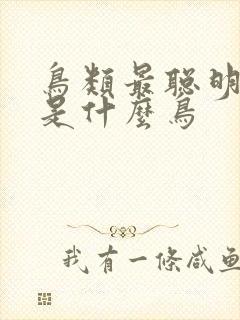 鳥類最聪明
是什麼鳥
我有一條咸鱼